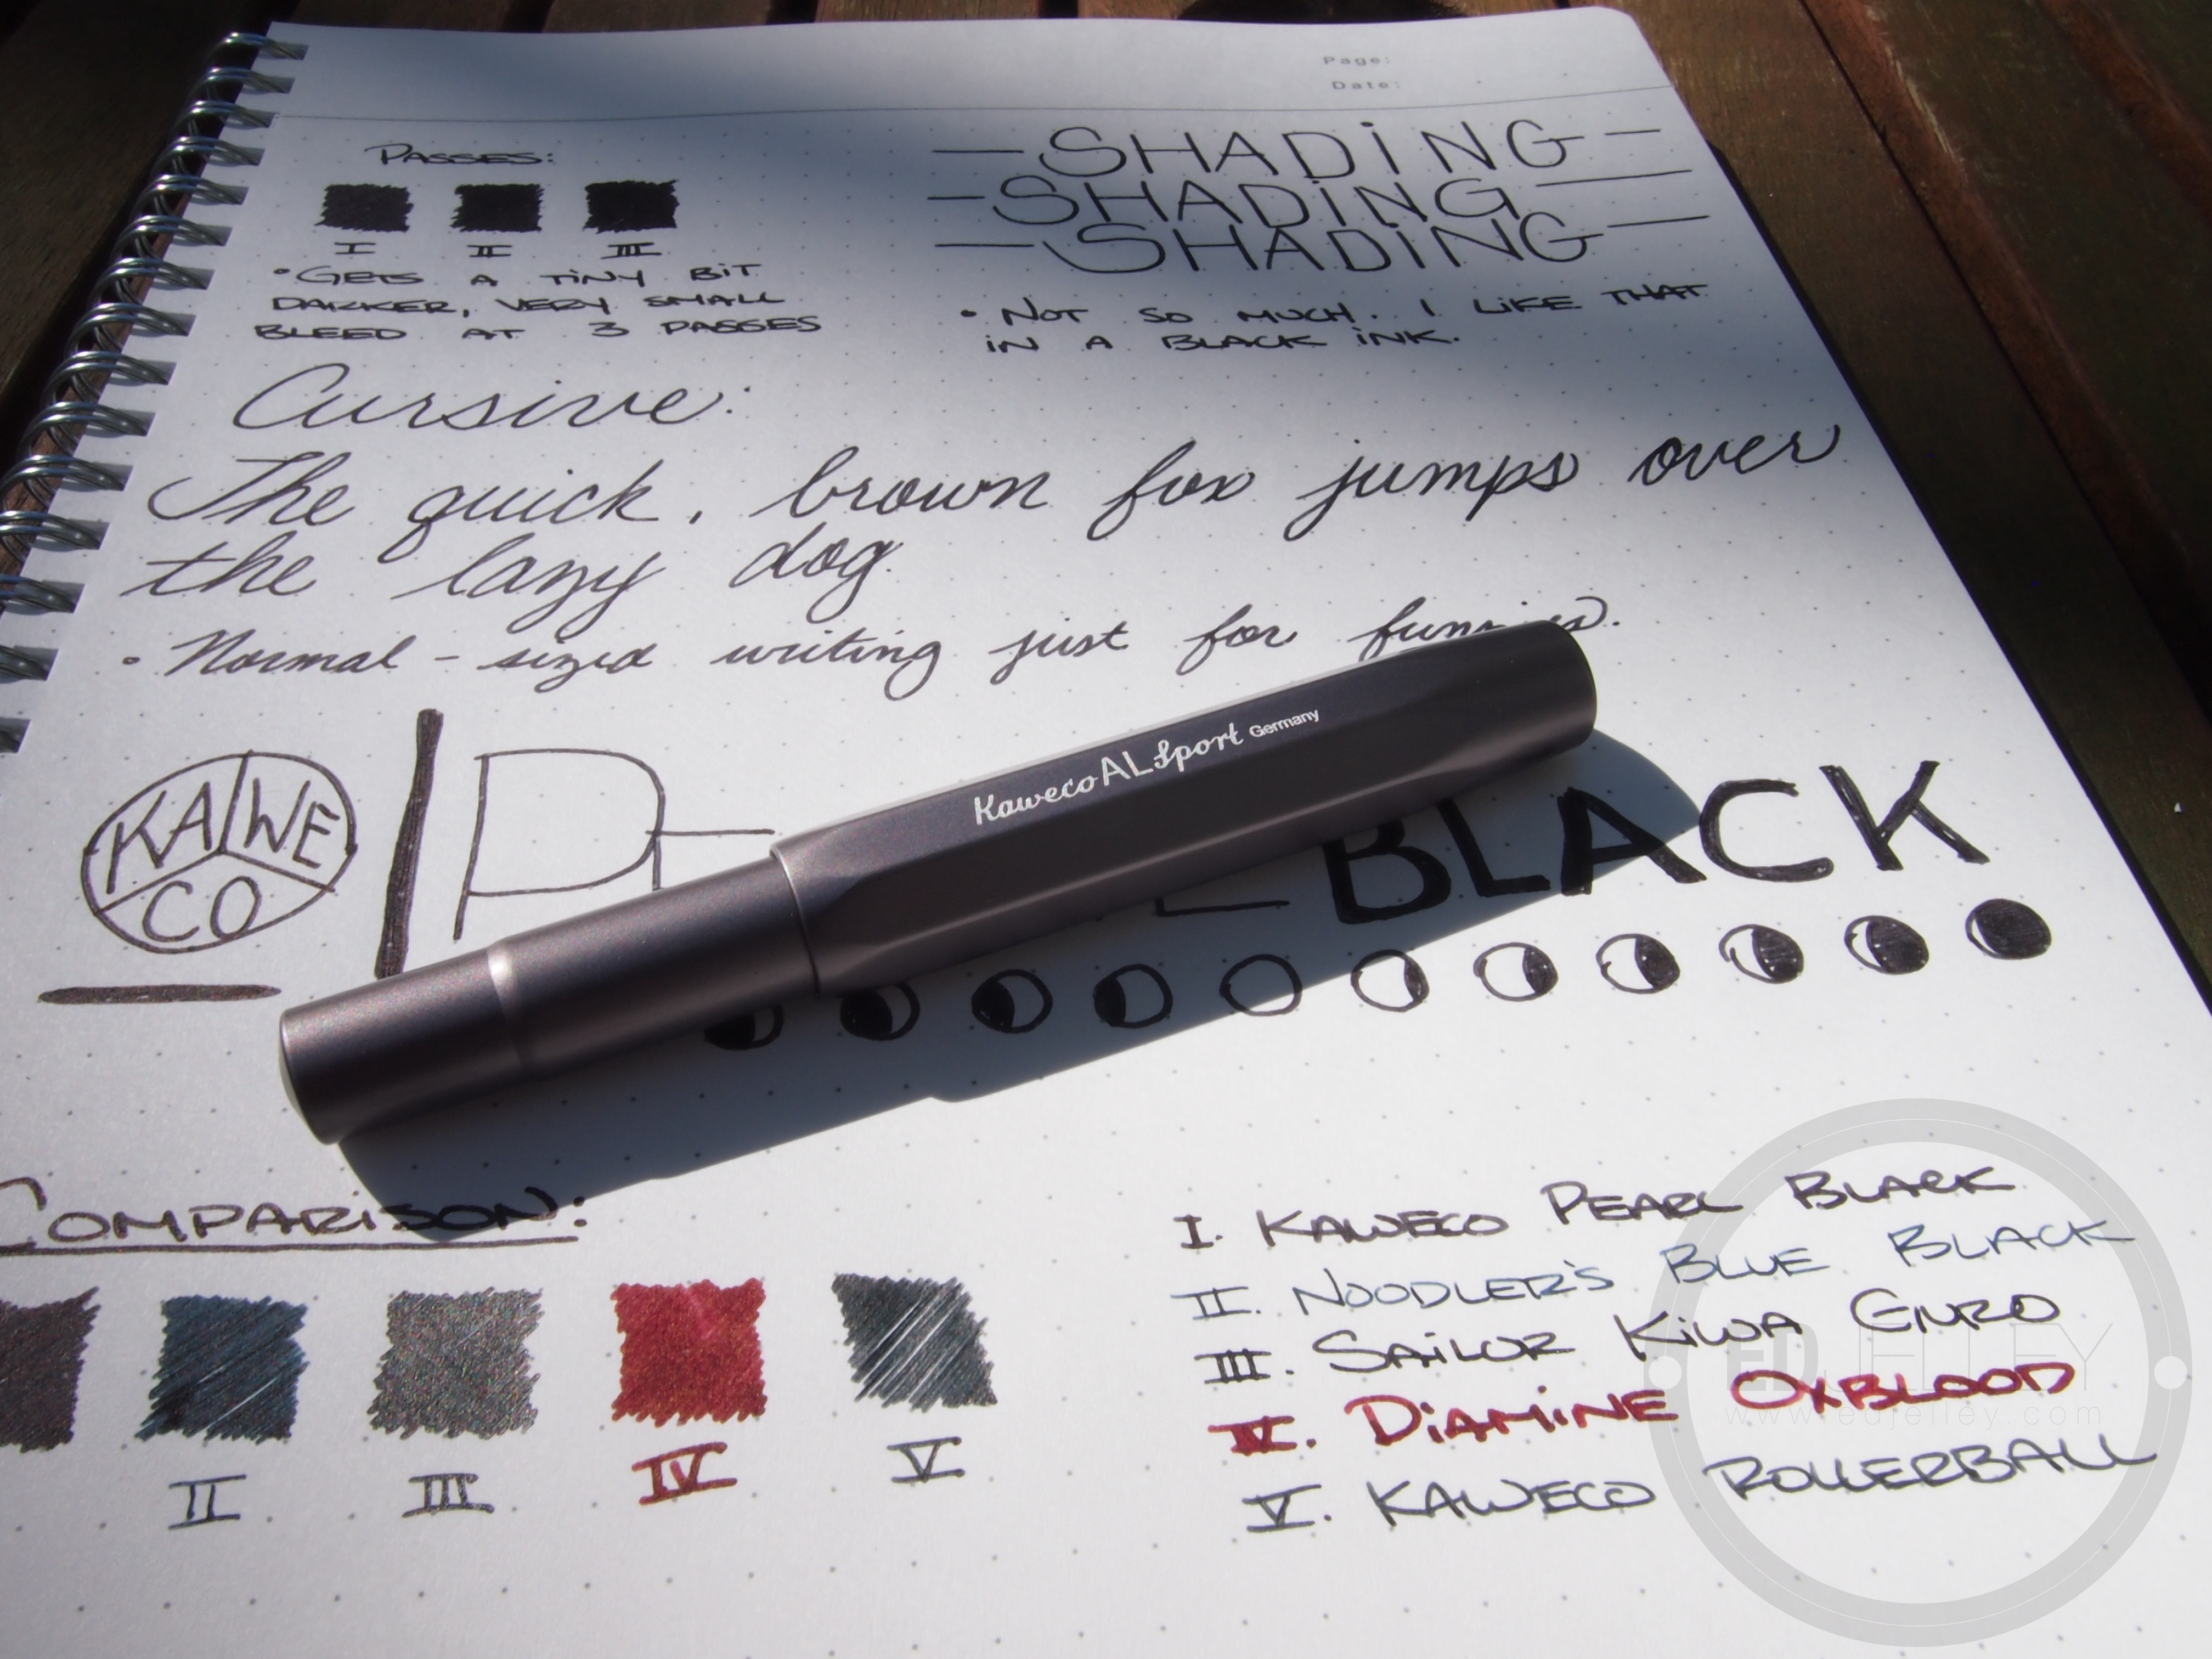 Page:
Date:
PASSES:
I II III
• GETS A TINY BIT
DARKER, VERY SMALL
BLEED AT 3 PASSES
SHADING
SHADING
SHADING
• NOT SO MUCH. I LIKE THAT
IN A BLACK INK.
Cursive:
The quick, brown fox jumps over
the lazy dog.
• Normal-sized writing just for
KAWECO
BLACK
Kaweco AL Sport Germany
COMPARISON:
II III IV V
I. KAWECO PEARL BLACK
II. NOODLER'S BLUE BLACK
III. SAILOR KIWA GURO
IV. DIAMINE OXBLOOD
V. KAWECO ROLLERBALL
EDJELLEY
www.edjelley.com